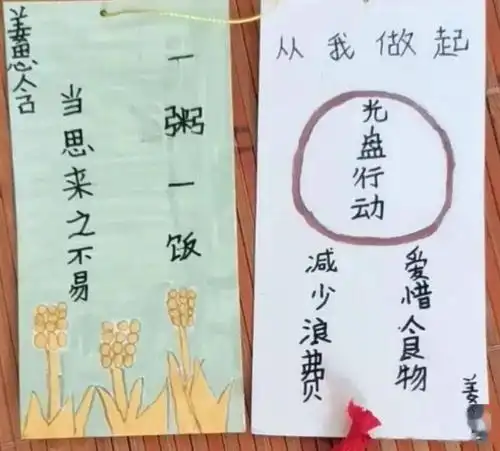 一粥一饭
当思来之不易
姜思含
从我做起
光盘行动
爱惜食物
减少浪费
姜